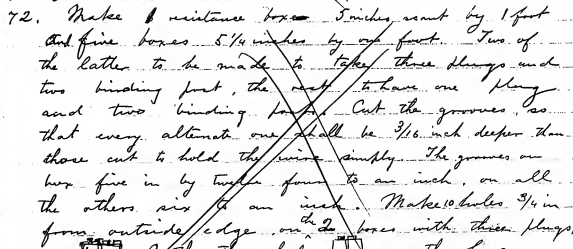 72. Make 1 resistance box 5 inches scant by 1 foot
and five boxes 5 1/4 inches by one foot. Two of
the latter to be made to take three plugs and
two binding post, the rest to have one plug
and two binding posts. Cut the grooves, so
that every alternate one shall be 3/16 inch deeper than
those cut to hold the wire simply. The grooves on
box five in by twelve four to an inch, on all
the others six to an inch. Make 10 holes 3/4 in
from outside edge on the 2 boxes with three plugs,